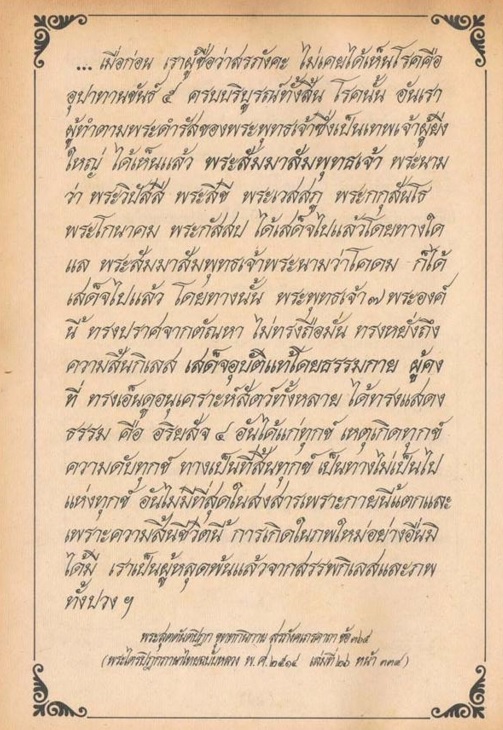 ... เมื่อก่อน เราผู้ชื่อว่าสรภังคะ ไม่เคยได้เห็นโรคคือ
อุปาทานขันธ์ ๕ ครบบริบูรณ์ทั้งสิ้น โรคนั้น อันเรา
ผู้ทำตามพระดำรัสของพระพุทธเจ้าซึ่งเป็นเทพเจ้าผู้ยิ่ง
ใหญ่ ได้เห็นแล้ว พระสัมมาสัมพุทธเจ้า พระนาม
ว่า พระวิปัสสี พระสิขี พระเวสสภู พระกกุสันโธ
พระโกนาคม พระกัสสป ได้เสด็จไปแล้วโดยทางใด
แล พระสัมมาสัมพุทธเจ้าพระนามว่าโคดม ก็ได้
เสด็จไปแล้ว โดยทางนั้น พระพุทธเจ้า ๗ พระองค์
นี้ ทรงปราศจากตัณหา ไม่ทรงถือมั่น ทรงหยั่งถึง
ความสิ้นกิเลส เสด็จอุบัติแท้โดยธรรมกาย ผู้คง
ที่ ทรงเอ็นดูอนุเคราะห์สัตว์ทั้งหลาย ได้ทรงแสดง
ธรรม คือ อริยสัจ ๔ อันได้แก่ทุกข์ เหตุเกิดทุกข์
ความดับทุกข์ ทางเป็นที่สิ้นทุกข์ เป็นทางไม่เป็นไป
แห่งทุกข์ อันไม่มีที่สุดในสงสารเพราะกายนี้แตกและ
เพราะความสิ้นชีวิตนี้ การเกิดในภพใหม่อย่างอื่นมิ
ได้มี เราเป็นผู้หลุดพ้นแล้วจากสรรพกิเลสและภพ
ทั้งปวง ฯ
พระสุตตันตปิฎก ขุททกนิกาย สรภังคเถรคาถา ข้อ ๓๖๕
(พระไตรปิฎกภาษาไทยฉบับหลวง พ.ศ.๒๕๑๔ เล่มที่ ๒๖ หน้า ๓๓๙)